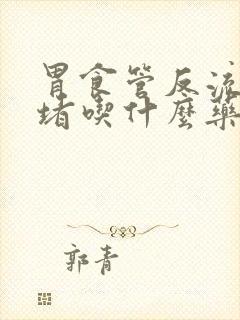 胃食管反流
堵喫什麼藥
郭青